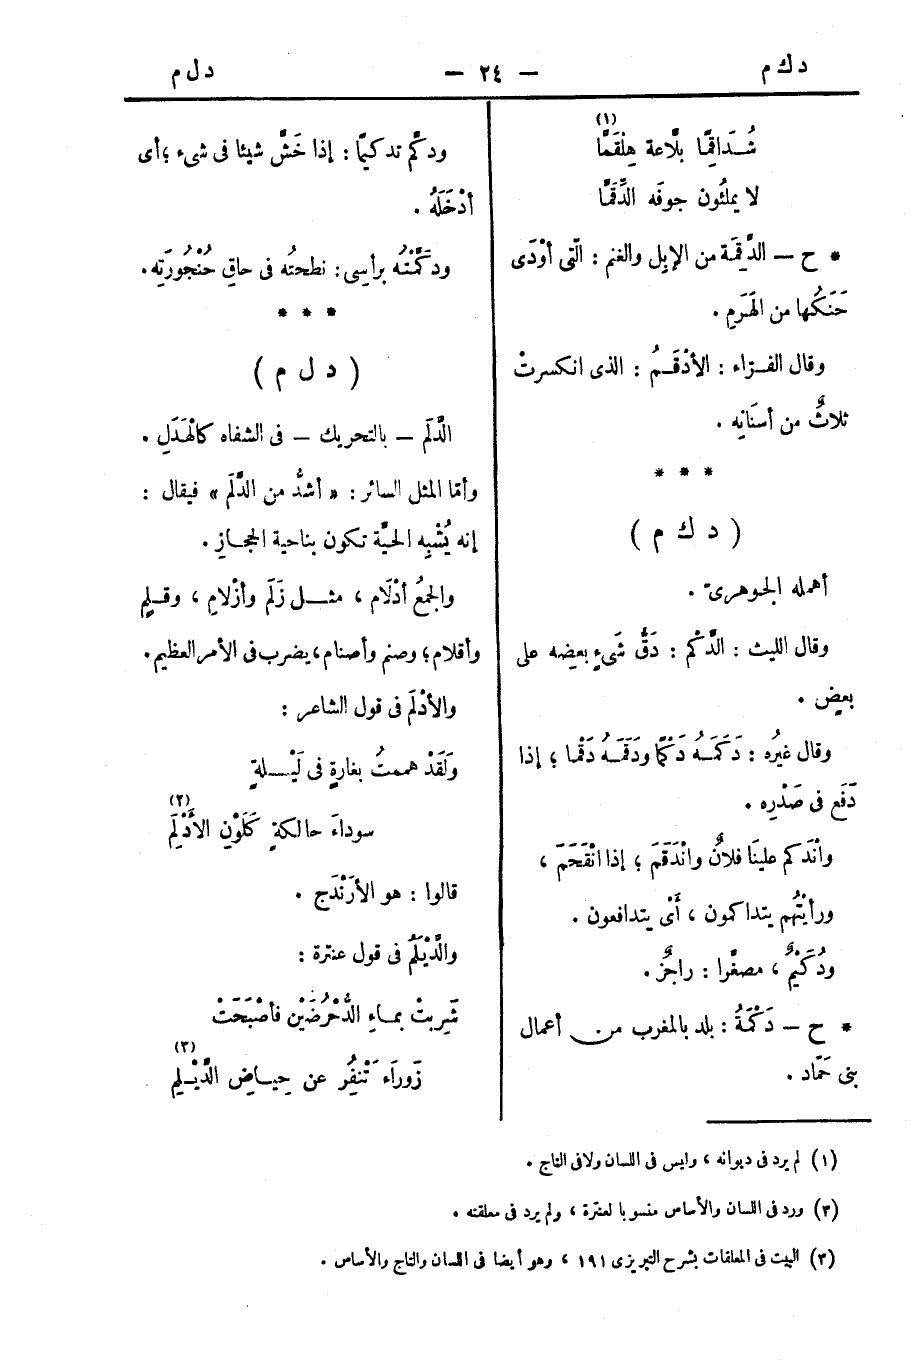 د ك م
— ٢٤ —
د ل م
(١)
شُـدَاقِمًا بلَّاعة هِلْقَمًّا
لا يملئون جوفَه الدِّقَمَّا
* ح — الدَّقِمَة من الإبل والغنم : الّتى أَوْدَى
حَنَكُها من الهَرَمِ .
وقال الفـرّاء : الأَدْقَـمُ : الذى انكسرتْ
ثلاثٌ من أسنَانِه .
* * *
( د ك م )
أهمله الجوهرىّ .
وقال الليث : الدَّكْم : دَقُّ شَىءٍ بعضِه على
بعضٍ .
وقال غيرُه : دَكَمَـهُ دَكْمًا ودَقَمَـهُ دَقْما ؛ إذا
دَفَع فى صَدْرِه .
وانْدَكم علينَا فلانٌ وانْدَقَمَ ؛ إذا انْقَحَمَ ،
ورأيْتُهم يتداكمون ، أَىْ يتدافعون .
ودُكَيْمٌ ، مصغّرا : راجزٌ .
* ح — دَكْمَةُ : بلد بالمغرب من أعمال
بنى حَمّاد .
ودكَّم تدكيمًا : إذا خَشَّ شيئا فى شىء ؛ أى
أَدْخَلَهُ .
ودَكَّمْتُـه برأسِى : نطحتُه فى حاقِ حُنْجُورَتِه .
* * *
( د ل م )
الدَّلَم — بالتحريك — فى الشفاه كالْهَدَلِ .
وأمّا المثل السائر : « أشدُّ من الدَّلَم » فيقال :
إنه يُشْبِه الحيَّة تكون بناحية الحجـازِ .
والجمعُ أَدْلَام ، مثـل زَلَم وأزْلامِ ، وقـلمٍ
وأقلام ؛ وصنم وأصنام ، يضرب فى الأمر العظيم .
والأَدْلَم فى قول الشاعر :
وَلَقَدْ هممتُ بغارةٍ فى لَيْـلةٍ
(٢)
سوداءَ حالكةٍ كَلَوْنِ الأَدْلَمِ
قالوا : هو الأَرَنْدَج .
والدَّيْلَمُ فى قول عنترة :
شَرِبتْ بمـاءِ الدُّحْرُضَيْنِ فأصْبَحَتْ
(٣)
زَوراءَ تَنْفِرُ عن حِيـاضِ الدَّيْلَمِ
(١) لم يرد فى ديوانه ، وليس فى اللسان ولا فى التاج .
(٢) ورد فى اللسان والأساس منسوبا لعنترة ، ولم يرد فى معلقته .
(٣) البيت فى المعلقات بشرح التبريزى ١٩١ ، وهو أيضا فى اللسان والتاج والأساس .